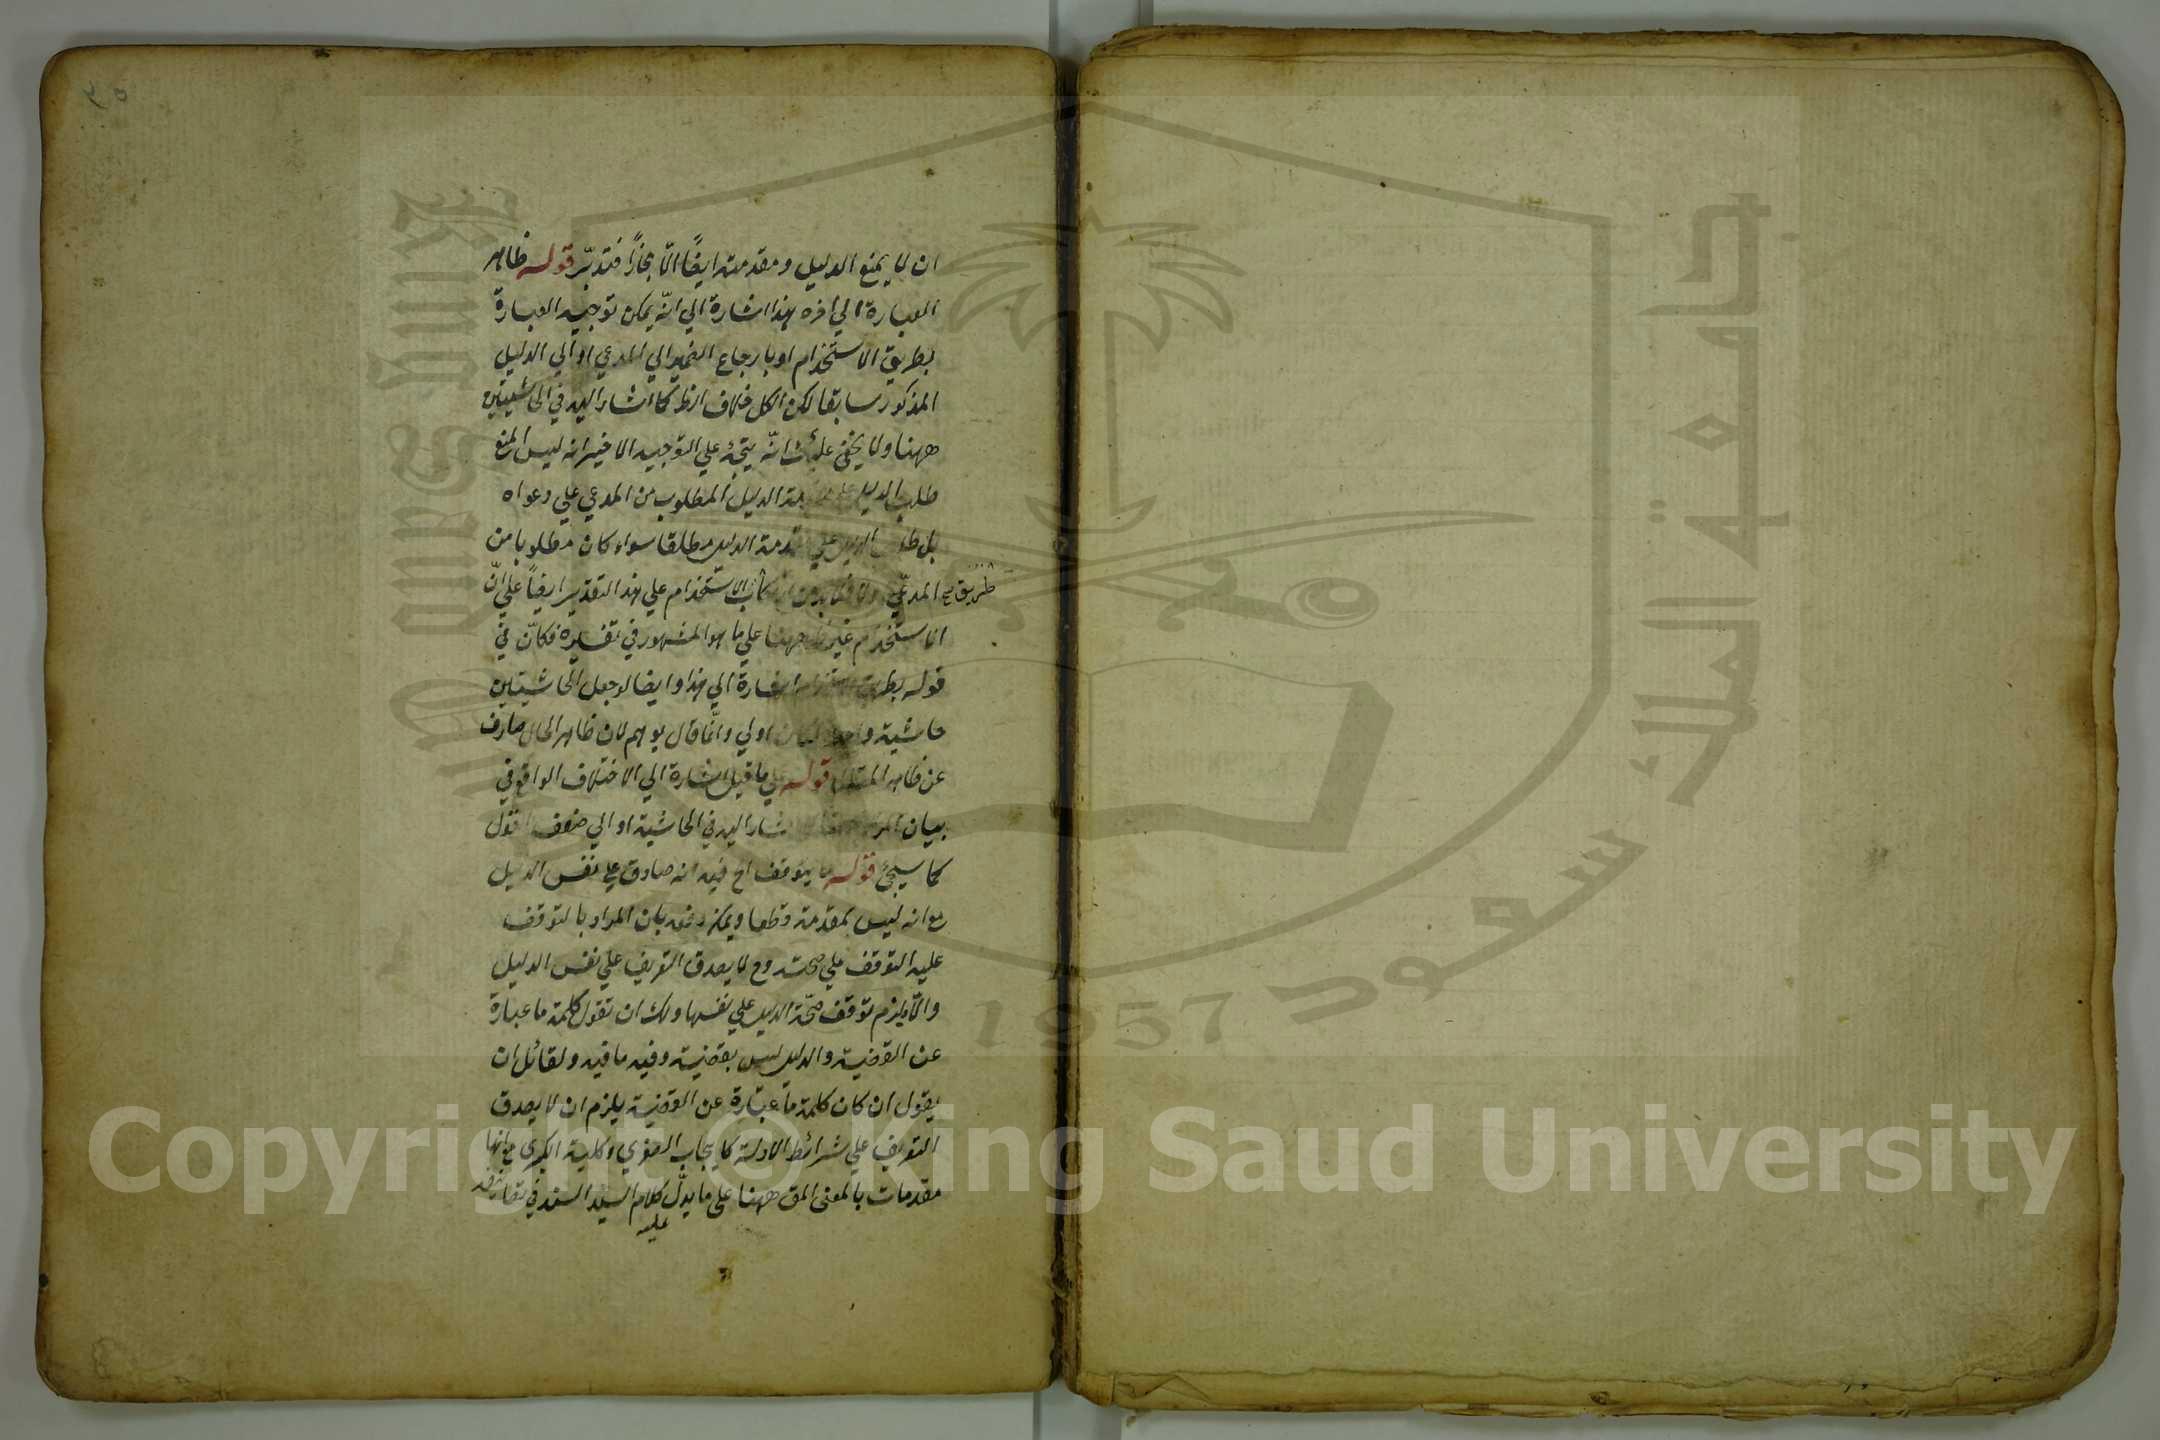 ٣٥
ان لا يمنع الدليل ومقدمته ايضًا الّا مجازًا فتدبّر قوله ظاهر
العبارة الي اخره هذا اشارة الي انّه يمكن توجيه العبارة
بطريق الاستخدام او بارجاع الضمير الي المدعي او الي الدليل
المذكور سابقا لكن الكل خلاف الظ كما اشار اليه في الحاشيتين
ههنا ولا يخفي عليك انّه يتجه علي التوجيه الاخير انه ليس المنع
طلب الدليل علي الدليل المطلوب من المدعي علي دعواه
بل طلب الدليل علي مقدمة الدليل مطلقا سواء كان مطلوبا من
المدعي الاستخدام علي هذا التقدير ايضًا علي انّ
طريق صح
الاستخدام غير ههنا علي ما هو المشهور في تفسيره فكانّ في
قوله بطريق اشارة الي هذا وايضا لو جعل الحاشيتين
حاشية اولي وانّما قال يوهم لان ظاهر الحال صارف
عن ظاهر المقال قوله علي ما قيل اشارة الي الاختلاف الواقع في
بيان اشار اليه في الحاشية او الي ضعف القول
كما سيجئ قوله ما يتوقف اخ فيه انه صادق علي نفس الدليل
مع انه ليس بمقدمة قطعا ويمكن دفعه بان المراد بالتوقف
عليه التوقف علي صحته وح لا يصدق التعريف علي نفس الدليل
والّا يلزم توقف صحّة الدليل علي نفسها ولك ان تقول كلمة ما عبارة
عن القضية والدليل ليس بقضية وفيه ما فيه ولقائل ان
يقول ان كان كلمة ما عبارة عن القضية يلزم ان لا يصدق
التعريف علي شرائط الادلة كايجاب الصغري وكلية الكبري مع انها
مقدمات بالمعني المق ههنا علي ما يدلّ كلام السيّد السند في
عليه
جامعة الملك سعود
King Saud University
1957
Copyright © King Saud University